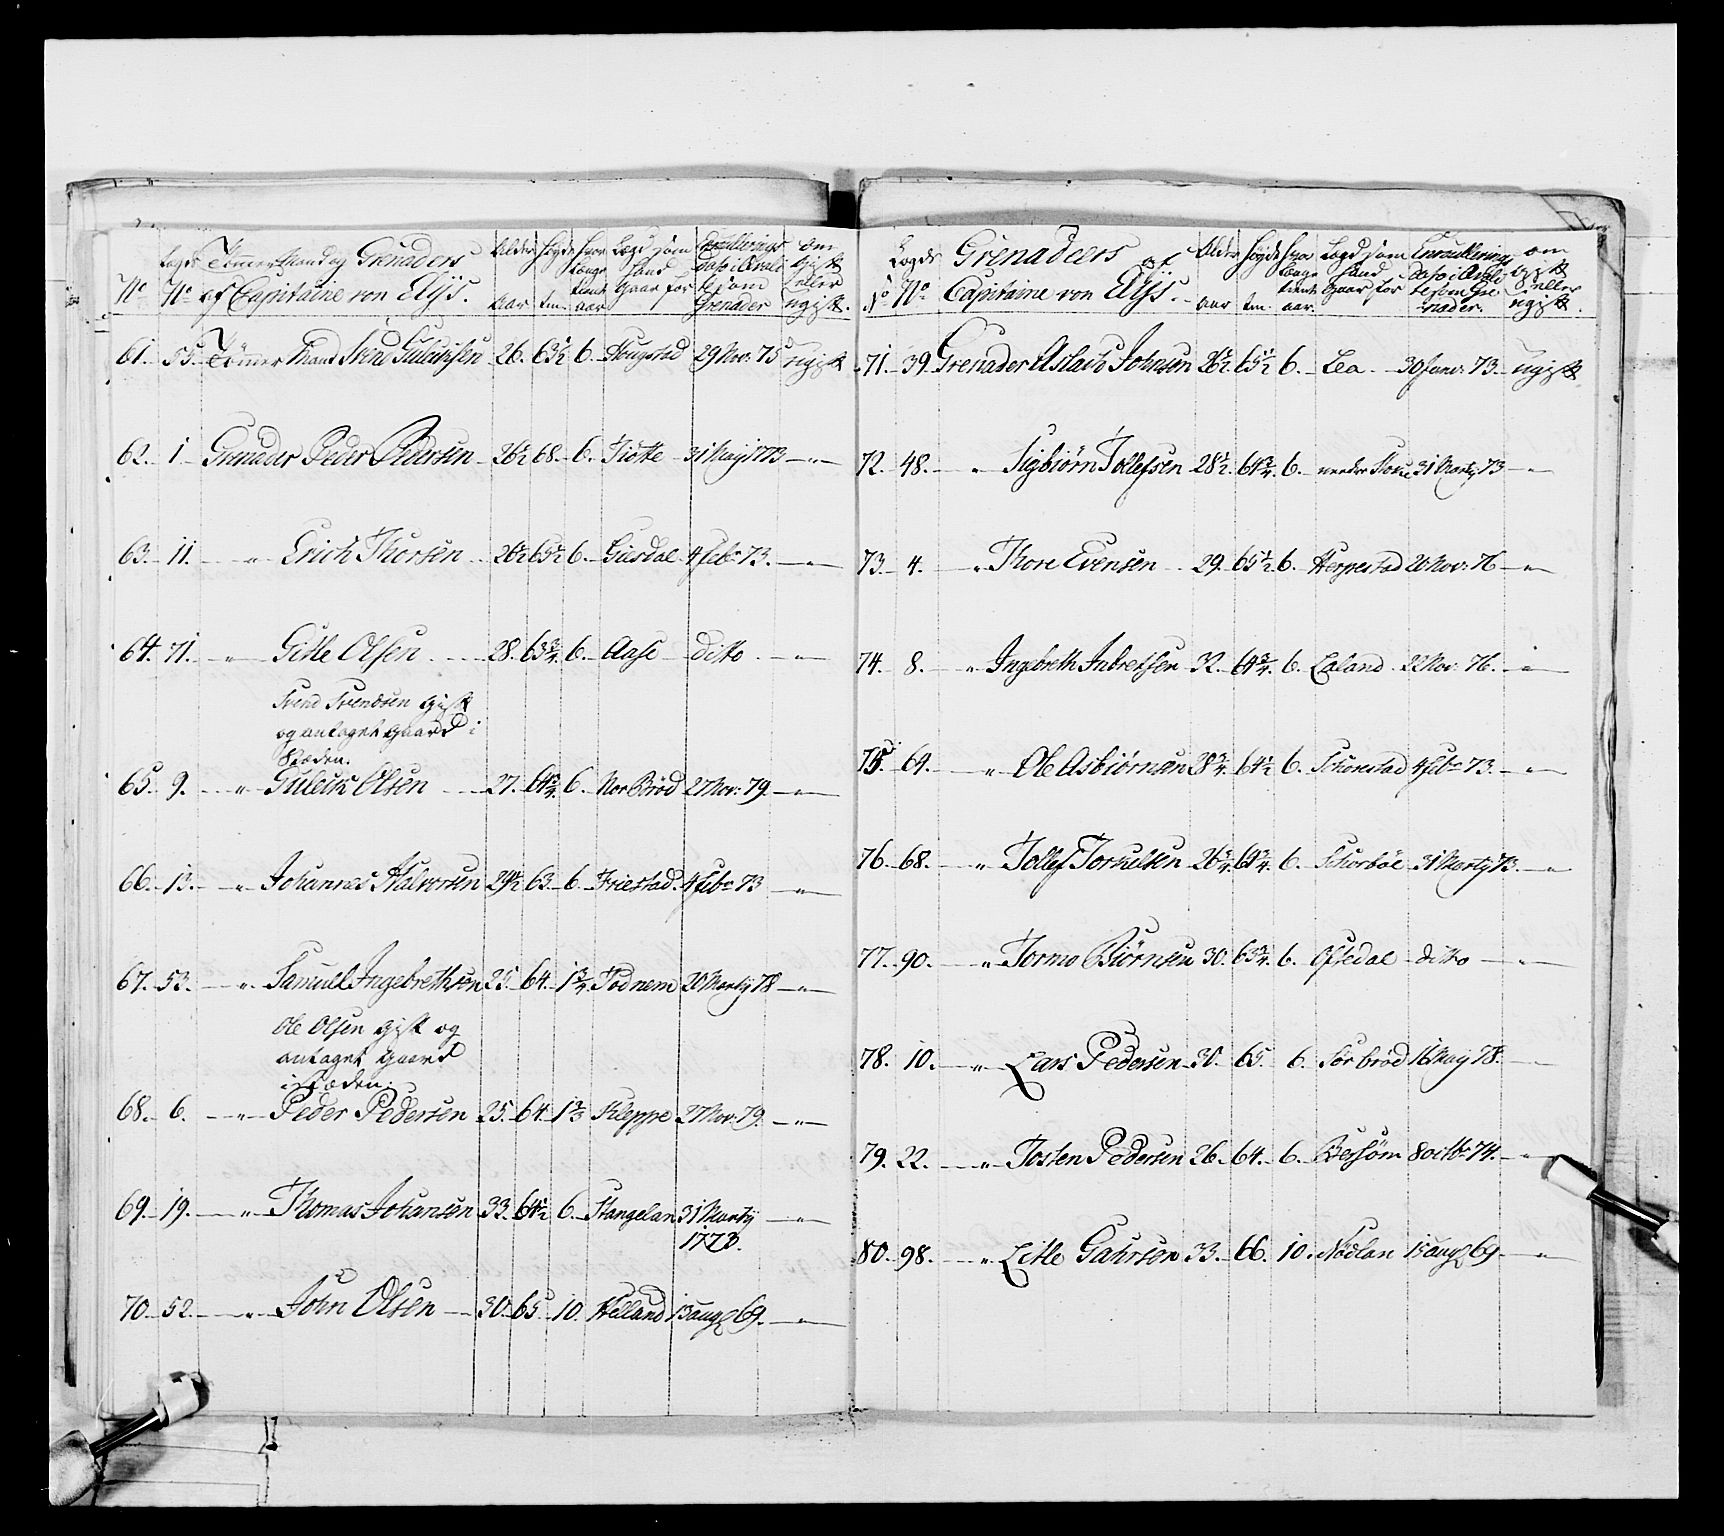 No Lægds No Tømmermand og Grenaders af Capitaine von Elys. Alder Aar Høyde tm. hvor Længe tient aar Lægd som hand staar for Enroullerings Dato i Qvalite som Grenader om gift eller ugift.
61. 55. Tømmermand Svend Gulichsen 26. 63½ 6. Hougstad 29 Nov: 75 ugift
62. 1. Grenader Peder Pedersen 26½ 68. 6. Tiøtte 31 May 1773 — " —
63. 11. " Erich Thorsen 26½ 65½ 6. Giesdal 4 Feb: 73. — " —
64. 71. " Gitle Olsen 28. 63¾. 6. Aase ditto — " —
Svend Svendsen gift
og antaget gaard i
Stæden.
65. 9. " Gulich Olsen 27. 64¾. 6. Nor Brød 27 Nov: 79. — " —
66. 13. " Johannes Halvorsen 29½ 63. 6. Friestad. 4 Feb: 73 — " —
67. 53. " Samuel Ingebrethsen 25. 64. 1¾. Todnem 20 Marty 78 — " —
Ole Olsen gift og
antaget gaard
i Stæden.
68. 6. " Peder Pedersen 25. 64. 1⅔ Kleppe 27 Nov: 79. — " —
69. 19. " Thomas Johansen 33. 64½ 6. Stangelan 31 Marty — " —
1773.
70. 52. " John Olsen 30. 65. 10. Helland 13 aug 69. — " —
No Lægds No Grenadeers af Capitaine von Elys. Alder aar Høyde tm. hvor Længe tient aar. Lægd som hand staar for Enroullering Dato i Qvalite som Grenader. om gift eller ugift.
71. 39. Grenader Aslach Johnsen 26½. 65½ 6. Lea 30 Janv: 73. ugift
72. 48. " Sigbiørn Tollefsen 28½. 64¾. 6. nordre 31 Marty 73 — " —
73. 4. " Thore Evensen 29. 65½ 6. Herpestad 20 Nov: 76 — " —
74. 8. " Ingebreth Inbretsen 32. 64¾. 6. Laland 22 Nov: 76. — " —
75. 64. " Ole Asbiørnsen 28¾. 64½ 6. 4 Feb: 73. — " —
76. 68. " Tollef Torkelsen 26¾. 64¾. 6. 31 Marty 73. — " —
77. 90. " Tormo Biørnsen 30. 63¾. 6. Ofstedal ditto — " —
78. 10. " Lars Pedersen 30. 65. 6. Sør brød 16 May 78. — " —
79. 22. " Josten Pedersen 26. 64. 6. Bersøm 8 octbr 74. — " —
80. 98. " Eitle Gahrsen 33. 66. 10. Nødlan 13 aug 69. — " —